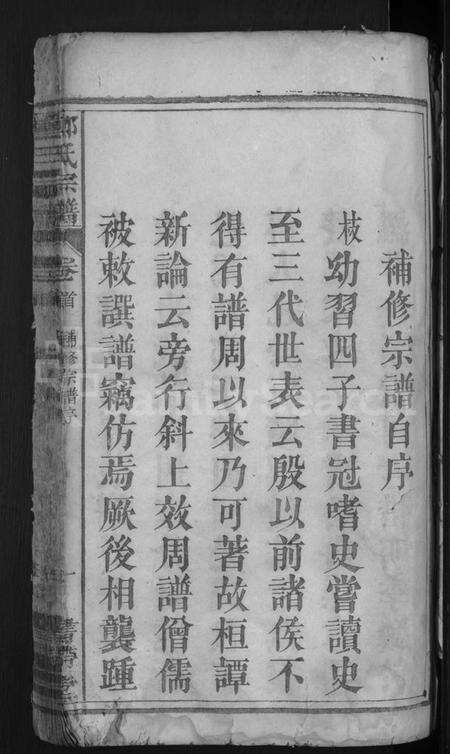 補修宗譜自序
枝幼習四子書冠嗜史嘗讀史
至三代世表云殷以前諸侯不
得有譜周以來乃可著故桓譚
新論云旁行斜上效周譜僧儒
被敕譔譜竊仿焉厥後相襲踵
氏宗譜
卷首
補修宗譜序
一
FamilySearch